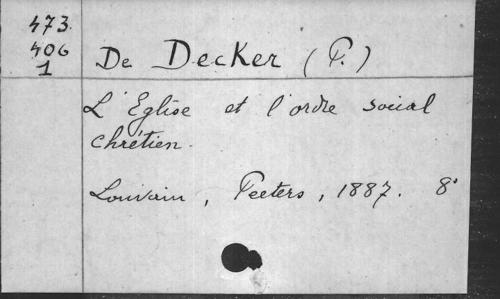 473
406
1
De Decker (P.)
L'Eglise et l'ordre social
chrétien.
Louvain, Peeters, 1887. 8°